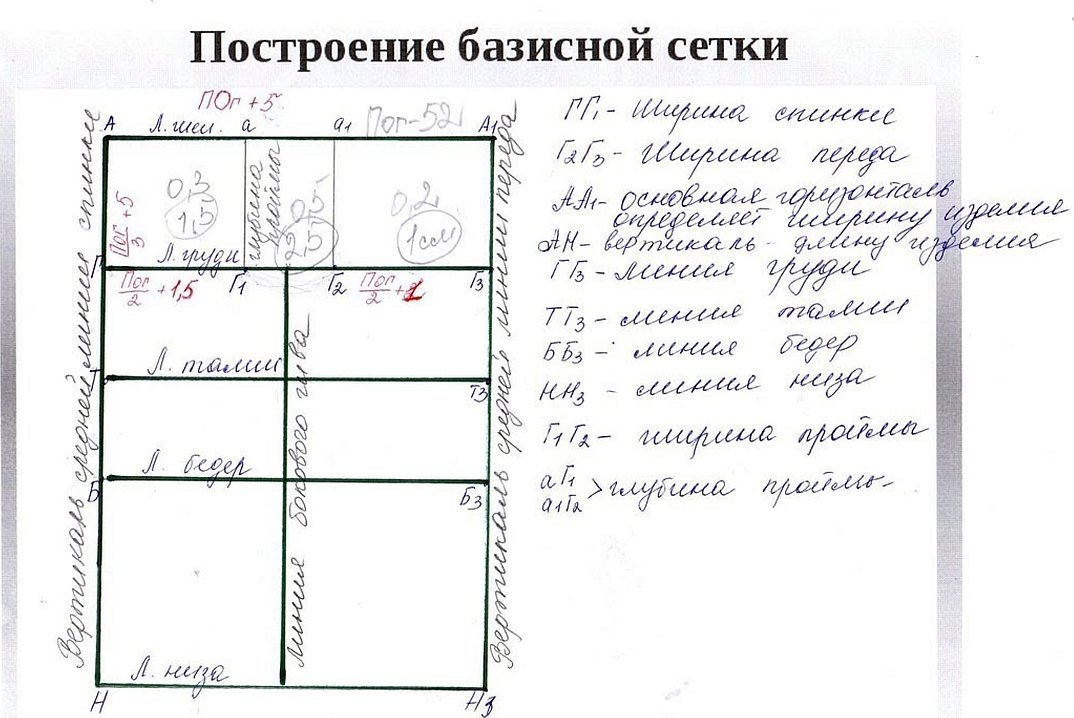 Построение базисной сетки
ПОг + 5
А Л. шеи. а а1 Пог-52 А1
Вертикаль средней линии спинки
Вертикаль средней линии переда
глубина проймы
0,3
1,5
0,2
1 см
Пог/3 + 5
Л. груди
Г Г1 Г2 Г3
Пог/2 + 1,5
Пог/2 + 1
Л. талии
Т3
линия бокового шва
Л. бедер
Б Б3
Л. низа
Н Н3
ГГ1 - Ширина спинки
Г2Г3 - Ширина переда
АА1 - основная горизонталь
определяет ширину изделия
АН - вертикаль - длину изделия
ГГ3 - линия груди
ТТ3 - линия талии
ББ3 - линия бедер
НН3 - линия низа
Г1Г2 - ширина проймы
аГ1
а1Г2 > глубина проймы -